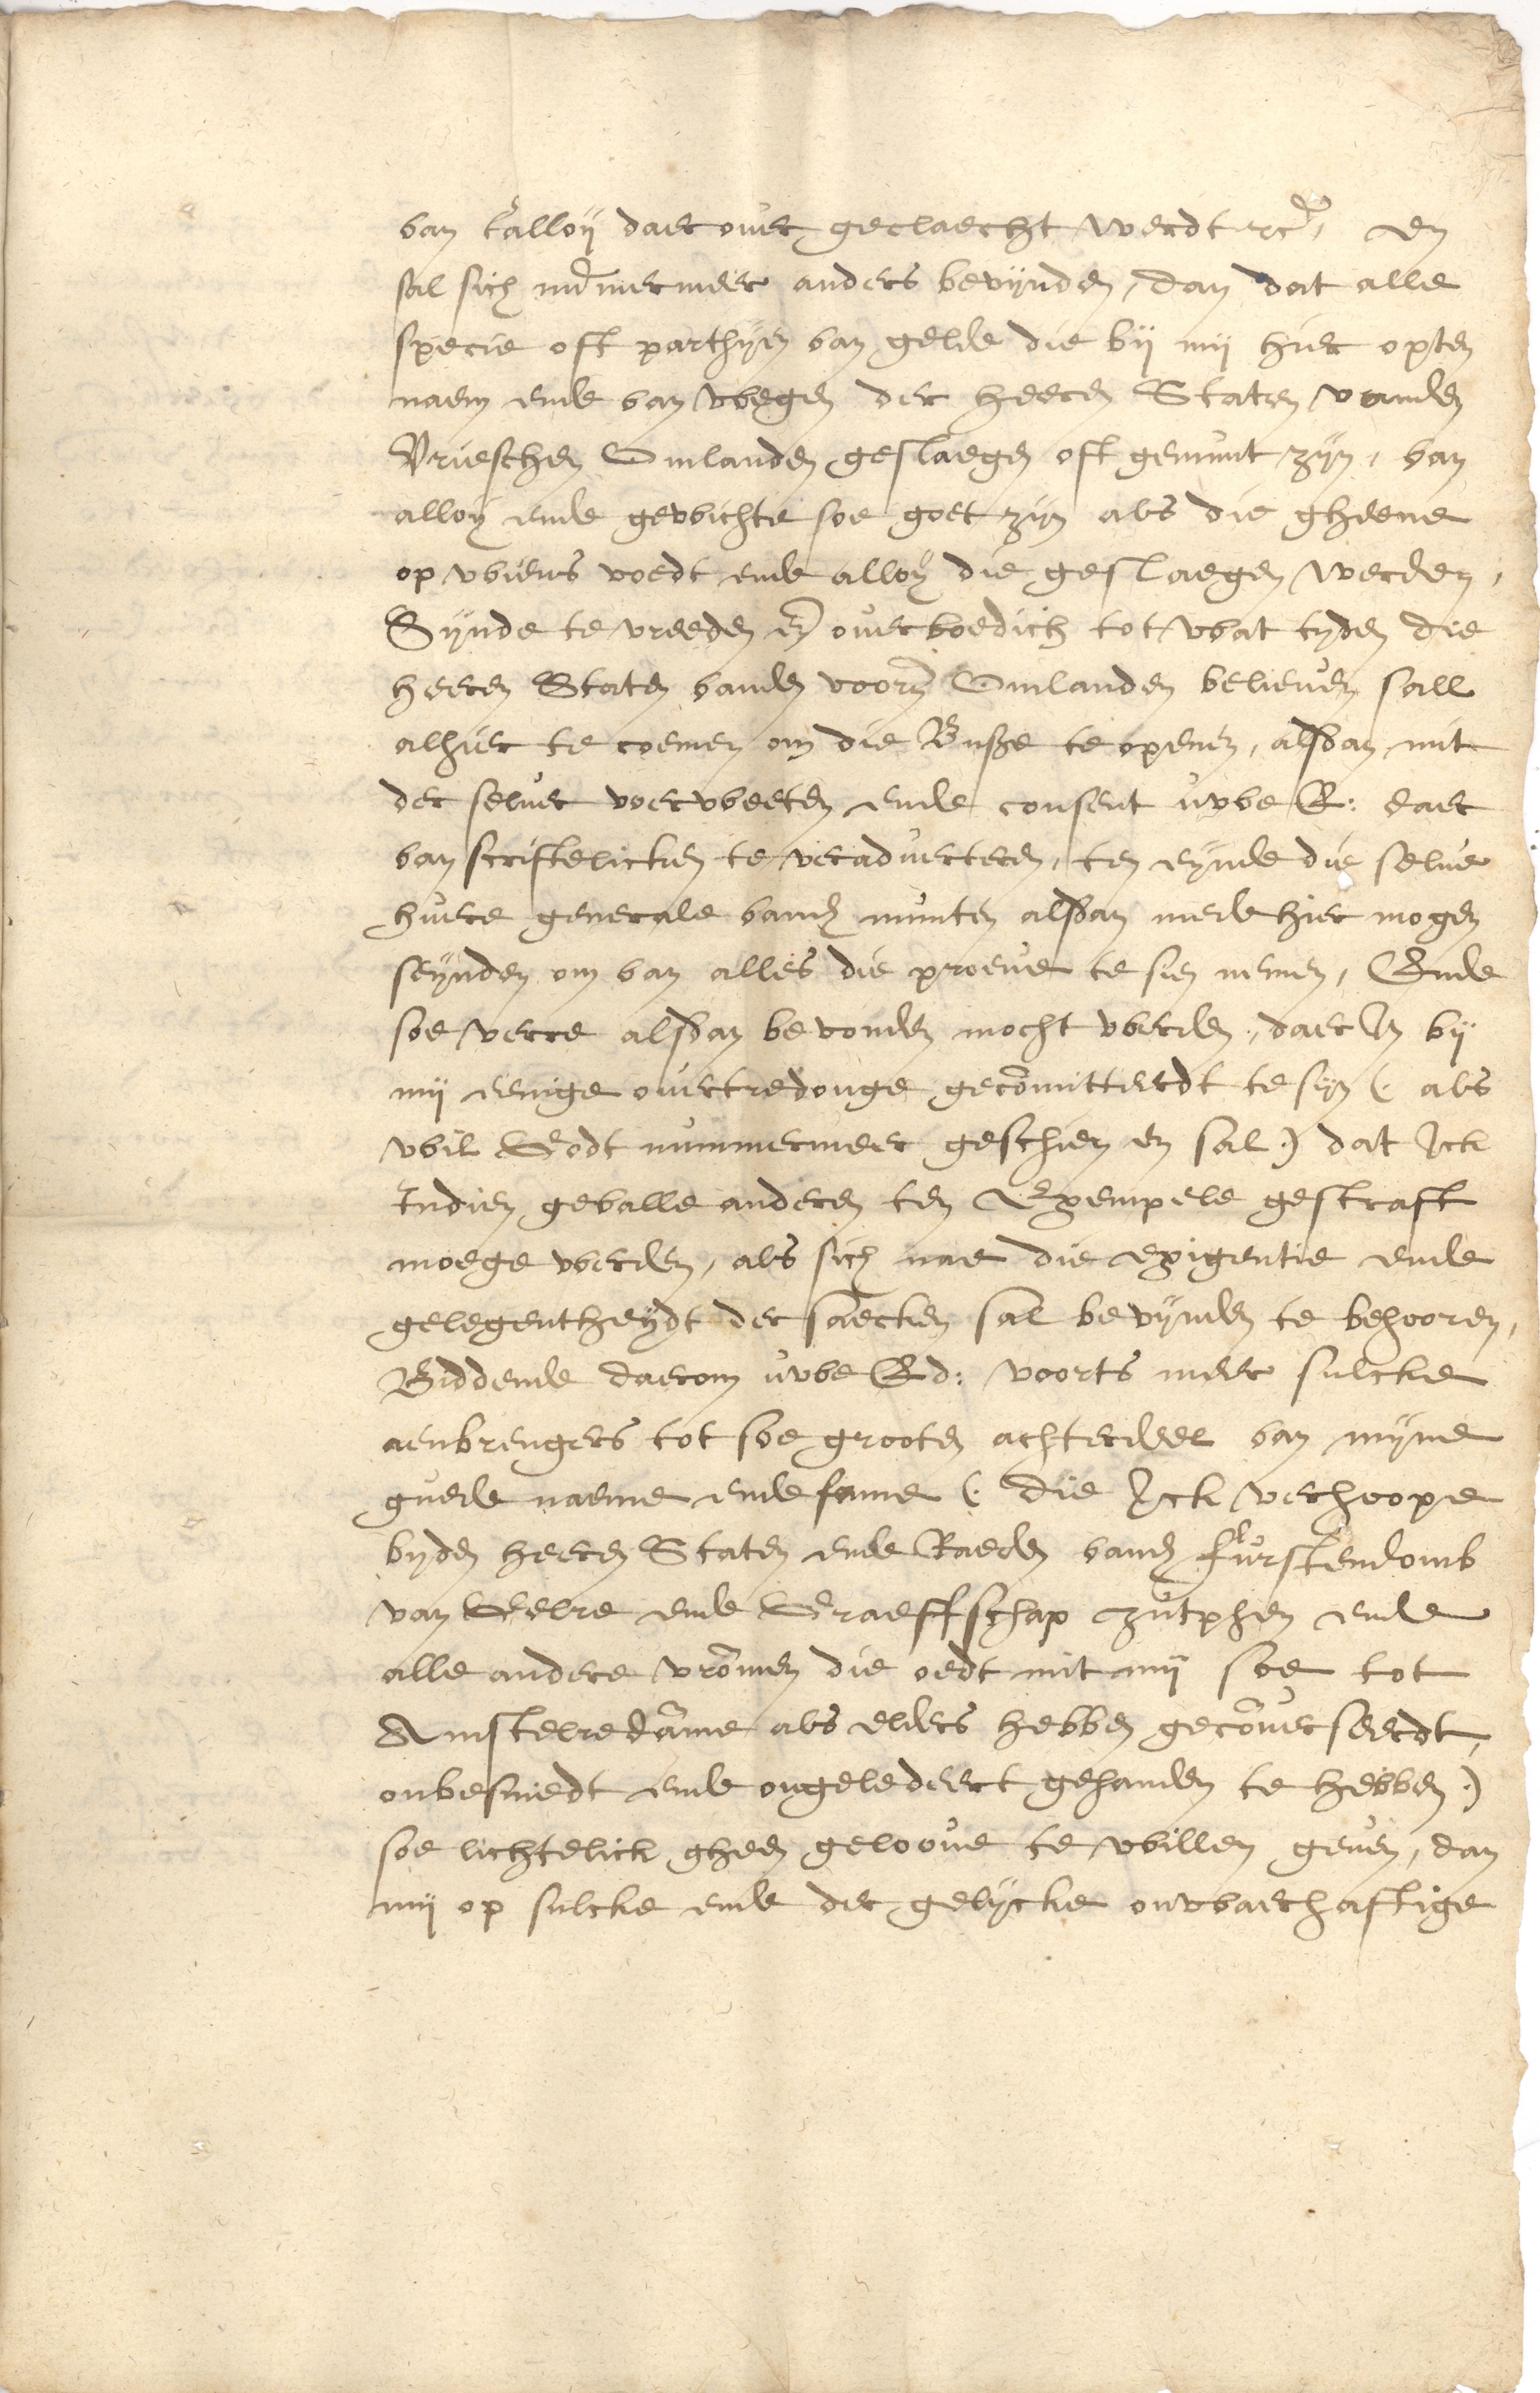 van t'alloij daer over geclaecht werdt etc̃. en
sal sich nũmermeer anders bevijnden, dan dat alle
specie oft parthijen van gelde die bij mij hier opten
naem ende van wegen der heeren Staten vanden
Vrieschen Omlanden geslaegen oft gemunt zijn, van
alloij ende gewichte soe goet zijn als die gheene
op wiens voedt ende alloij die geslaegen werden,
Sijnde te vreeden eñ overboedich tot wat tyden die
heeren Staten vanden voorñ Omlanden believen sall
alhier te coemen om die Busse te openen, alsdan mit
der selver voerweeten ende consent uwe E: daer
van scriftelicken te veradverteren, ten eijnde die selve
huere generale vande munten alsdan mede hier mogen
seijnden om van alles die proeve te sien nemen, Ende
soe verre alsdan bevonden mocht werden, daer In bij
mij eenige overtredonge gecõmitteerdt te sijn (. als
wil Godt nummermeer geschien en sal .) dat Ick
Indien gevalle anderen ten Exempele gestraft
moege werden, als sich nae die exigentie ende
gelegentheijdt der saecken sal bevijnden te behooren,
Biddende daerom uwe Ed: voorts meer sulcke
aenbrengers tot soe grooten achterdeel van mijne
guede naeme ende fame (. die Ick verhoope
byden heeren Staten ende Raeden vande furstendomb
van Gelre ende Graeffschap Zutphen ende
alle andere vrõmen die oedt mit mij soe tot
Amstelredãme als elders hebben gecõverseerdt,
onbesmedt ende ongeledeert gehanden te hebben .)
soe lichtelick gheen geloove te willen geven, dan
mij op sulcke ende der gelijcke onwaerhaftige